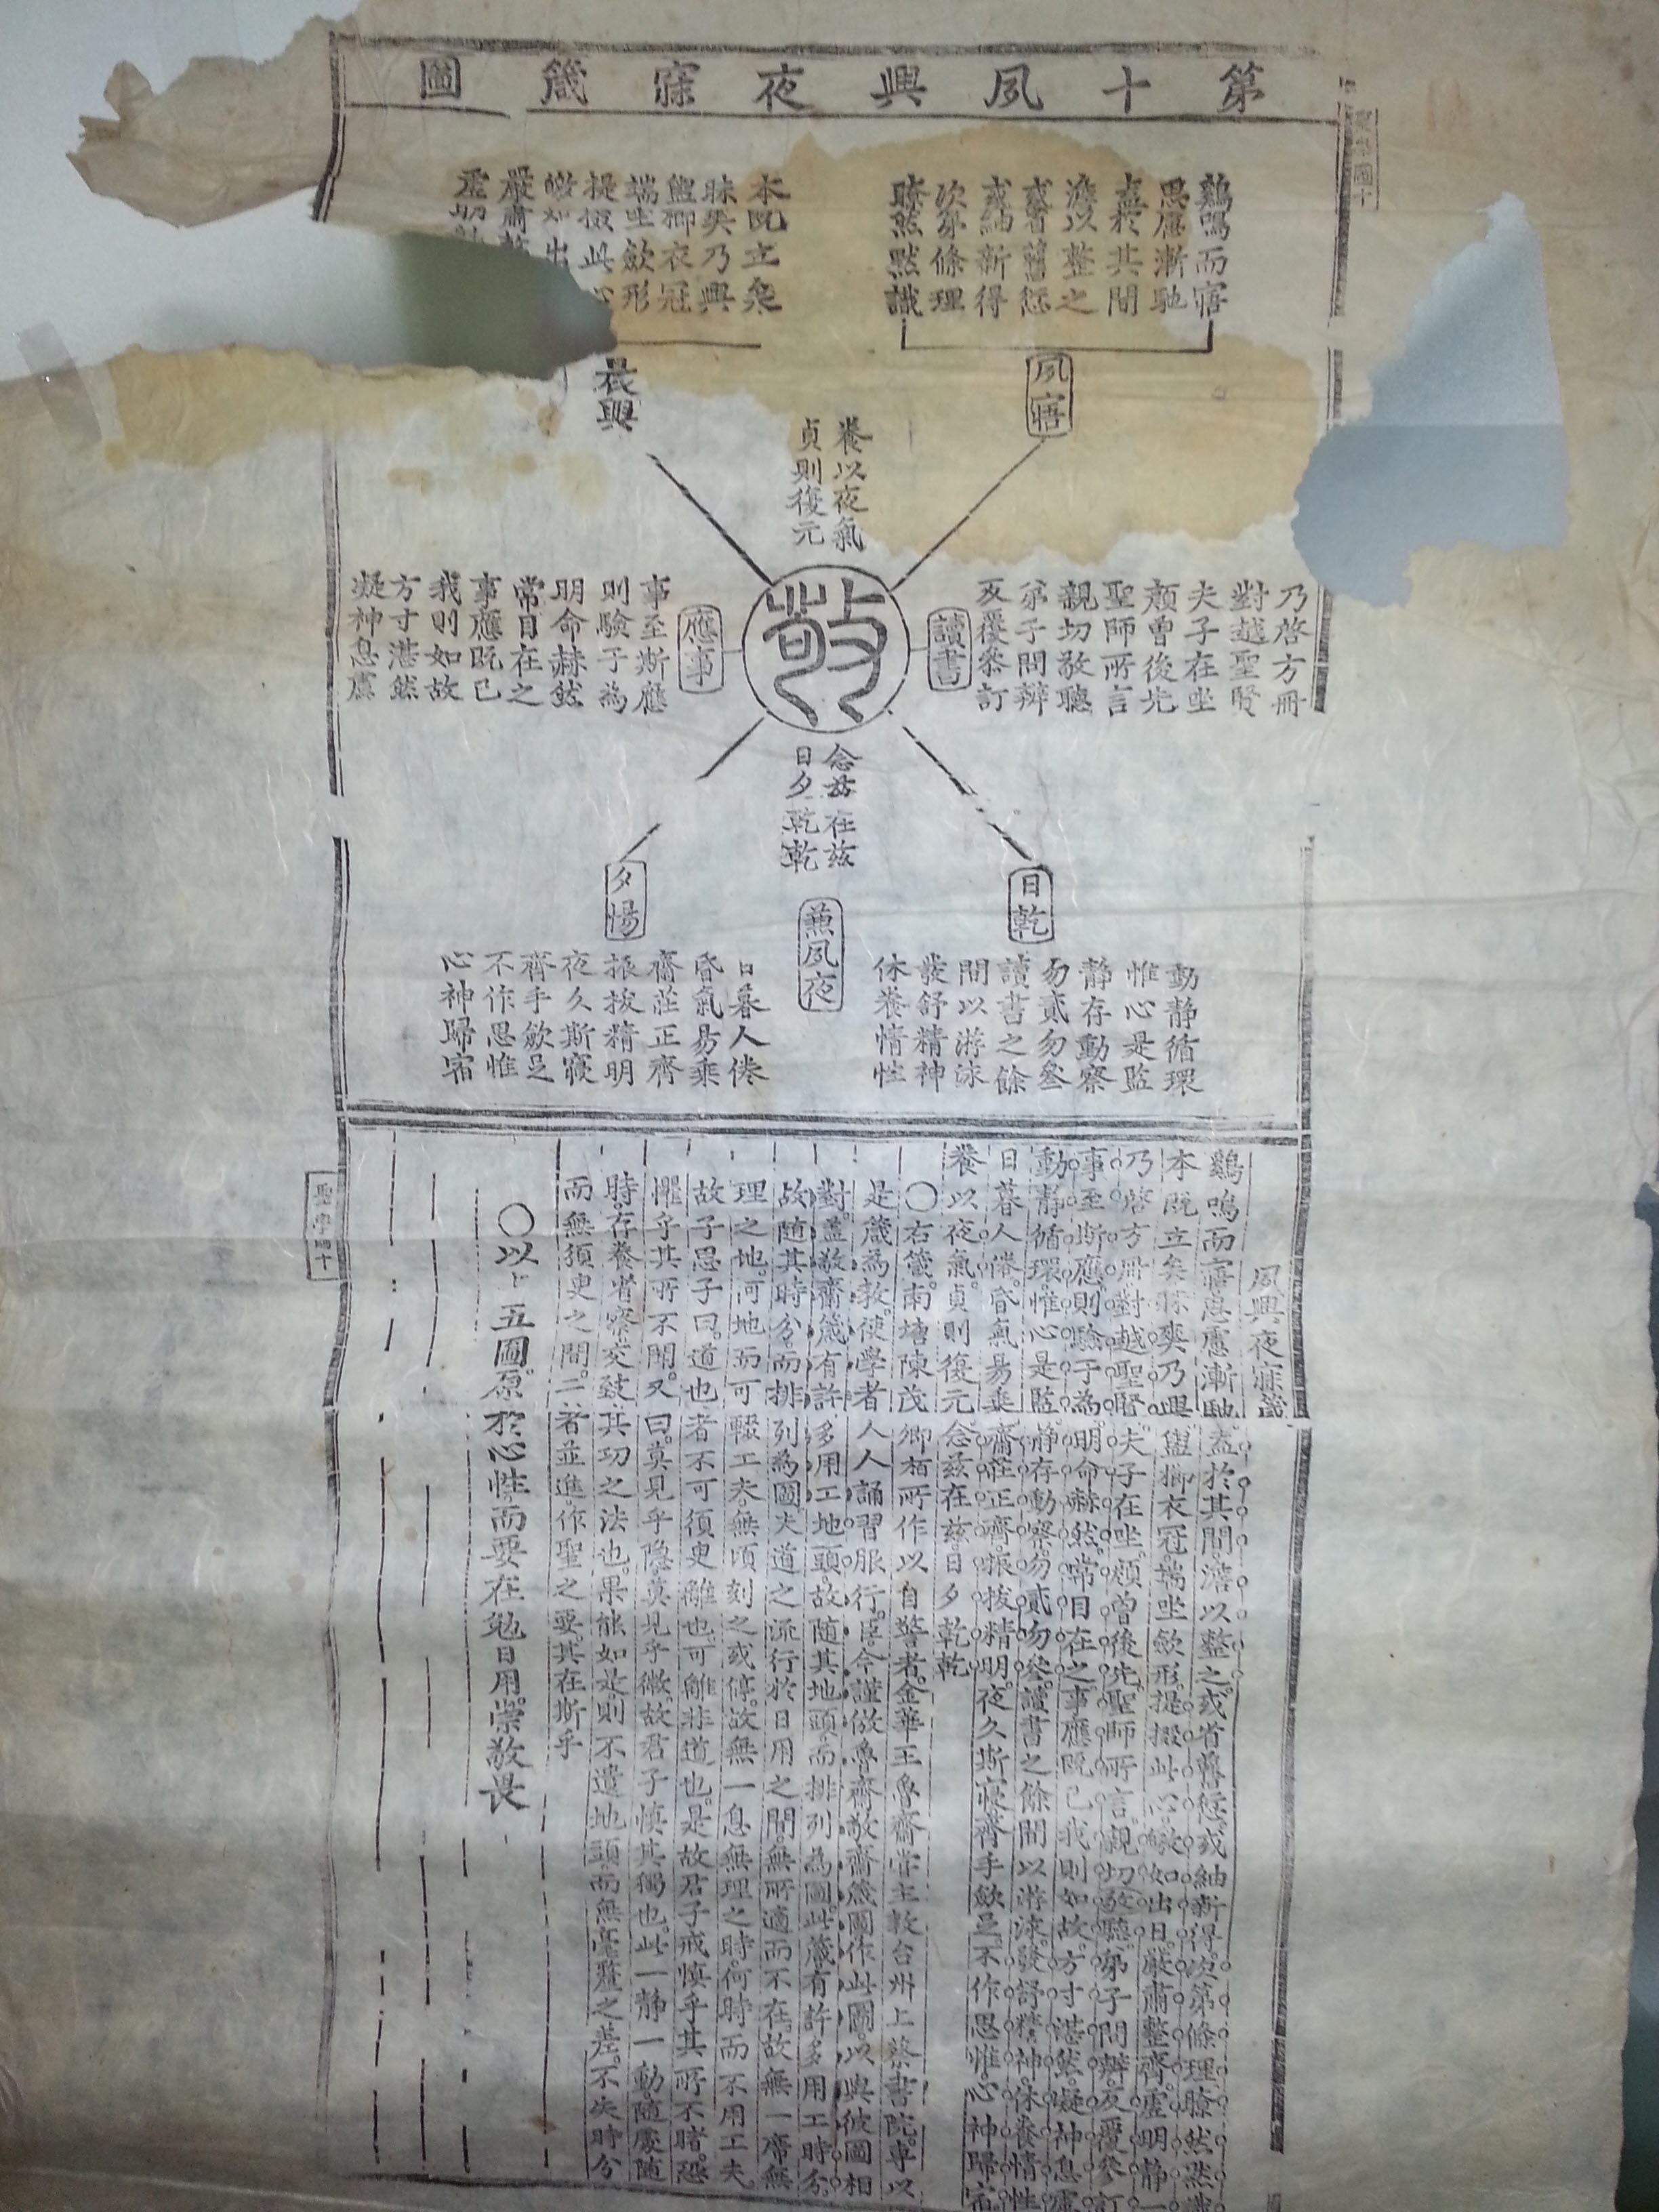 第十夙興夜寐箴圖
鷄鳴而寤
思慮漸馳
盍於其間
澹以整之
或省舊愆
或紬新得
次第條理
瞭然默識
夙寤
本既立矣
昧爽乃興
盥櫛衣冠
端坐斂形
提掇此心
皦如出
嚴肅整
虛明靜
晨興
養以夜氣
貞則復元
敬
乃啓方冊
對越聖賢
夫子在坐
顔曾後先
聖師所言
親切敬聽
弟子問辯
反覆參訂
讀書
應事
事至斯應
則驗于爲
明命赫然
常目在之
事應既已
我則如故
方寸湛然
凝神息慮
念茲在茲
日夕乾乾
日乾
動靜循環
惟心是監
靜存動察
勿貳勿參
讀書之餘
間以游泳
發舒精神
休養情性
兼夙夜
夕惕
日暮人倦
昏氣易乘
齋莊正齊
振拔精明
夜久斯寢
齊手斂足
不作思惟
心神歸宿
聖學圖十
夙興夜寐箴
鷄鳴而寤思慮漸馳盍於其間澹以整之或省舊愆或紬新得次第條理瞭然默識
本既立矣昧爽乃興盥櫛衣冠端坐斂形提掇此心皦如出日嚴肅整齊虛明靜一
乃啓方冊對越聖賢夫子在坐顔曾後先聖師所言親切敬聽弟子問辯反覆參訂
事至斯應則驗于爲明命赫然常目在之事應既已我則如故方寸湛然凝神息慮
動靜循環惟心是監靜存動察勿貳勿參讀書之餘間以游泳發舒精神休養情性
日暮人倦昏氣易乘齋莊正齊振拔精明夜久斯寢齊手斂足不作思惟心神歸宿
養以夜氣貞則復元念茲在茲日夕乾乾
○右箴南塘陳茂卿栢所作以自警者金華王魯齋嘗主敎台州上蔡書院專以
是箴爲敎使學者人人誦習服行臣今謹倣魯齋敬齋箴圖作此圖以與彼圖相
對蓋敬齋箴有許多用工地頭故隨其地頭而排列爲圖此箴有許多用工時分
故隨其時分而排列爲圖夫道之流行於日用之間無所適而不在故無一席無
理之地何地而可輟工夫無頃刻之或停故無一息無理之時何時而不用工夫
故子思子曰道也者不可須臾離也可離非道也是故君子戒愼乎其所不睹恐
懼乎其所不聞又曰莫見乎隱莫見乎微故君子愼其獨也此一靜一動隨處隨
時存養省察交致其功之法也果能如是則不遺地頭而無毫釐之差不失時分
而無須臾之間二者並進作聖之要其在斯乎
○以上五圖原於心性而要在勉日用崇敬畏